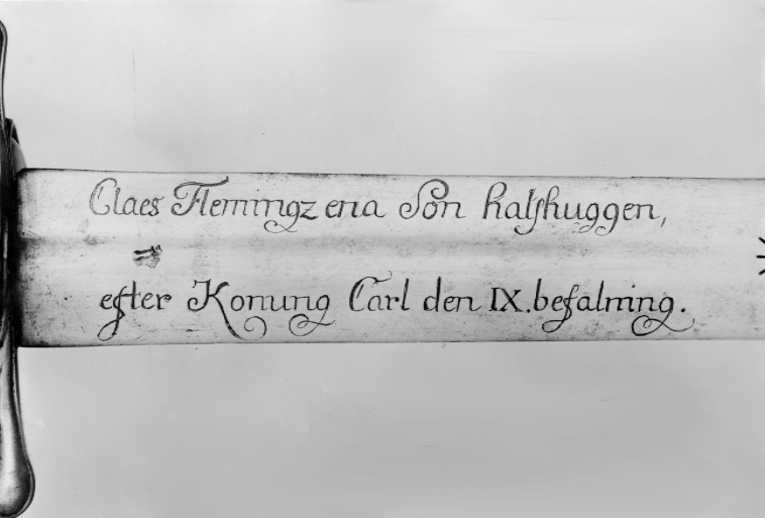 Claes Flemingz ena Son halshuggen,
efter Konung Carl den IX. befalning.